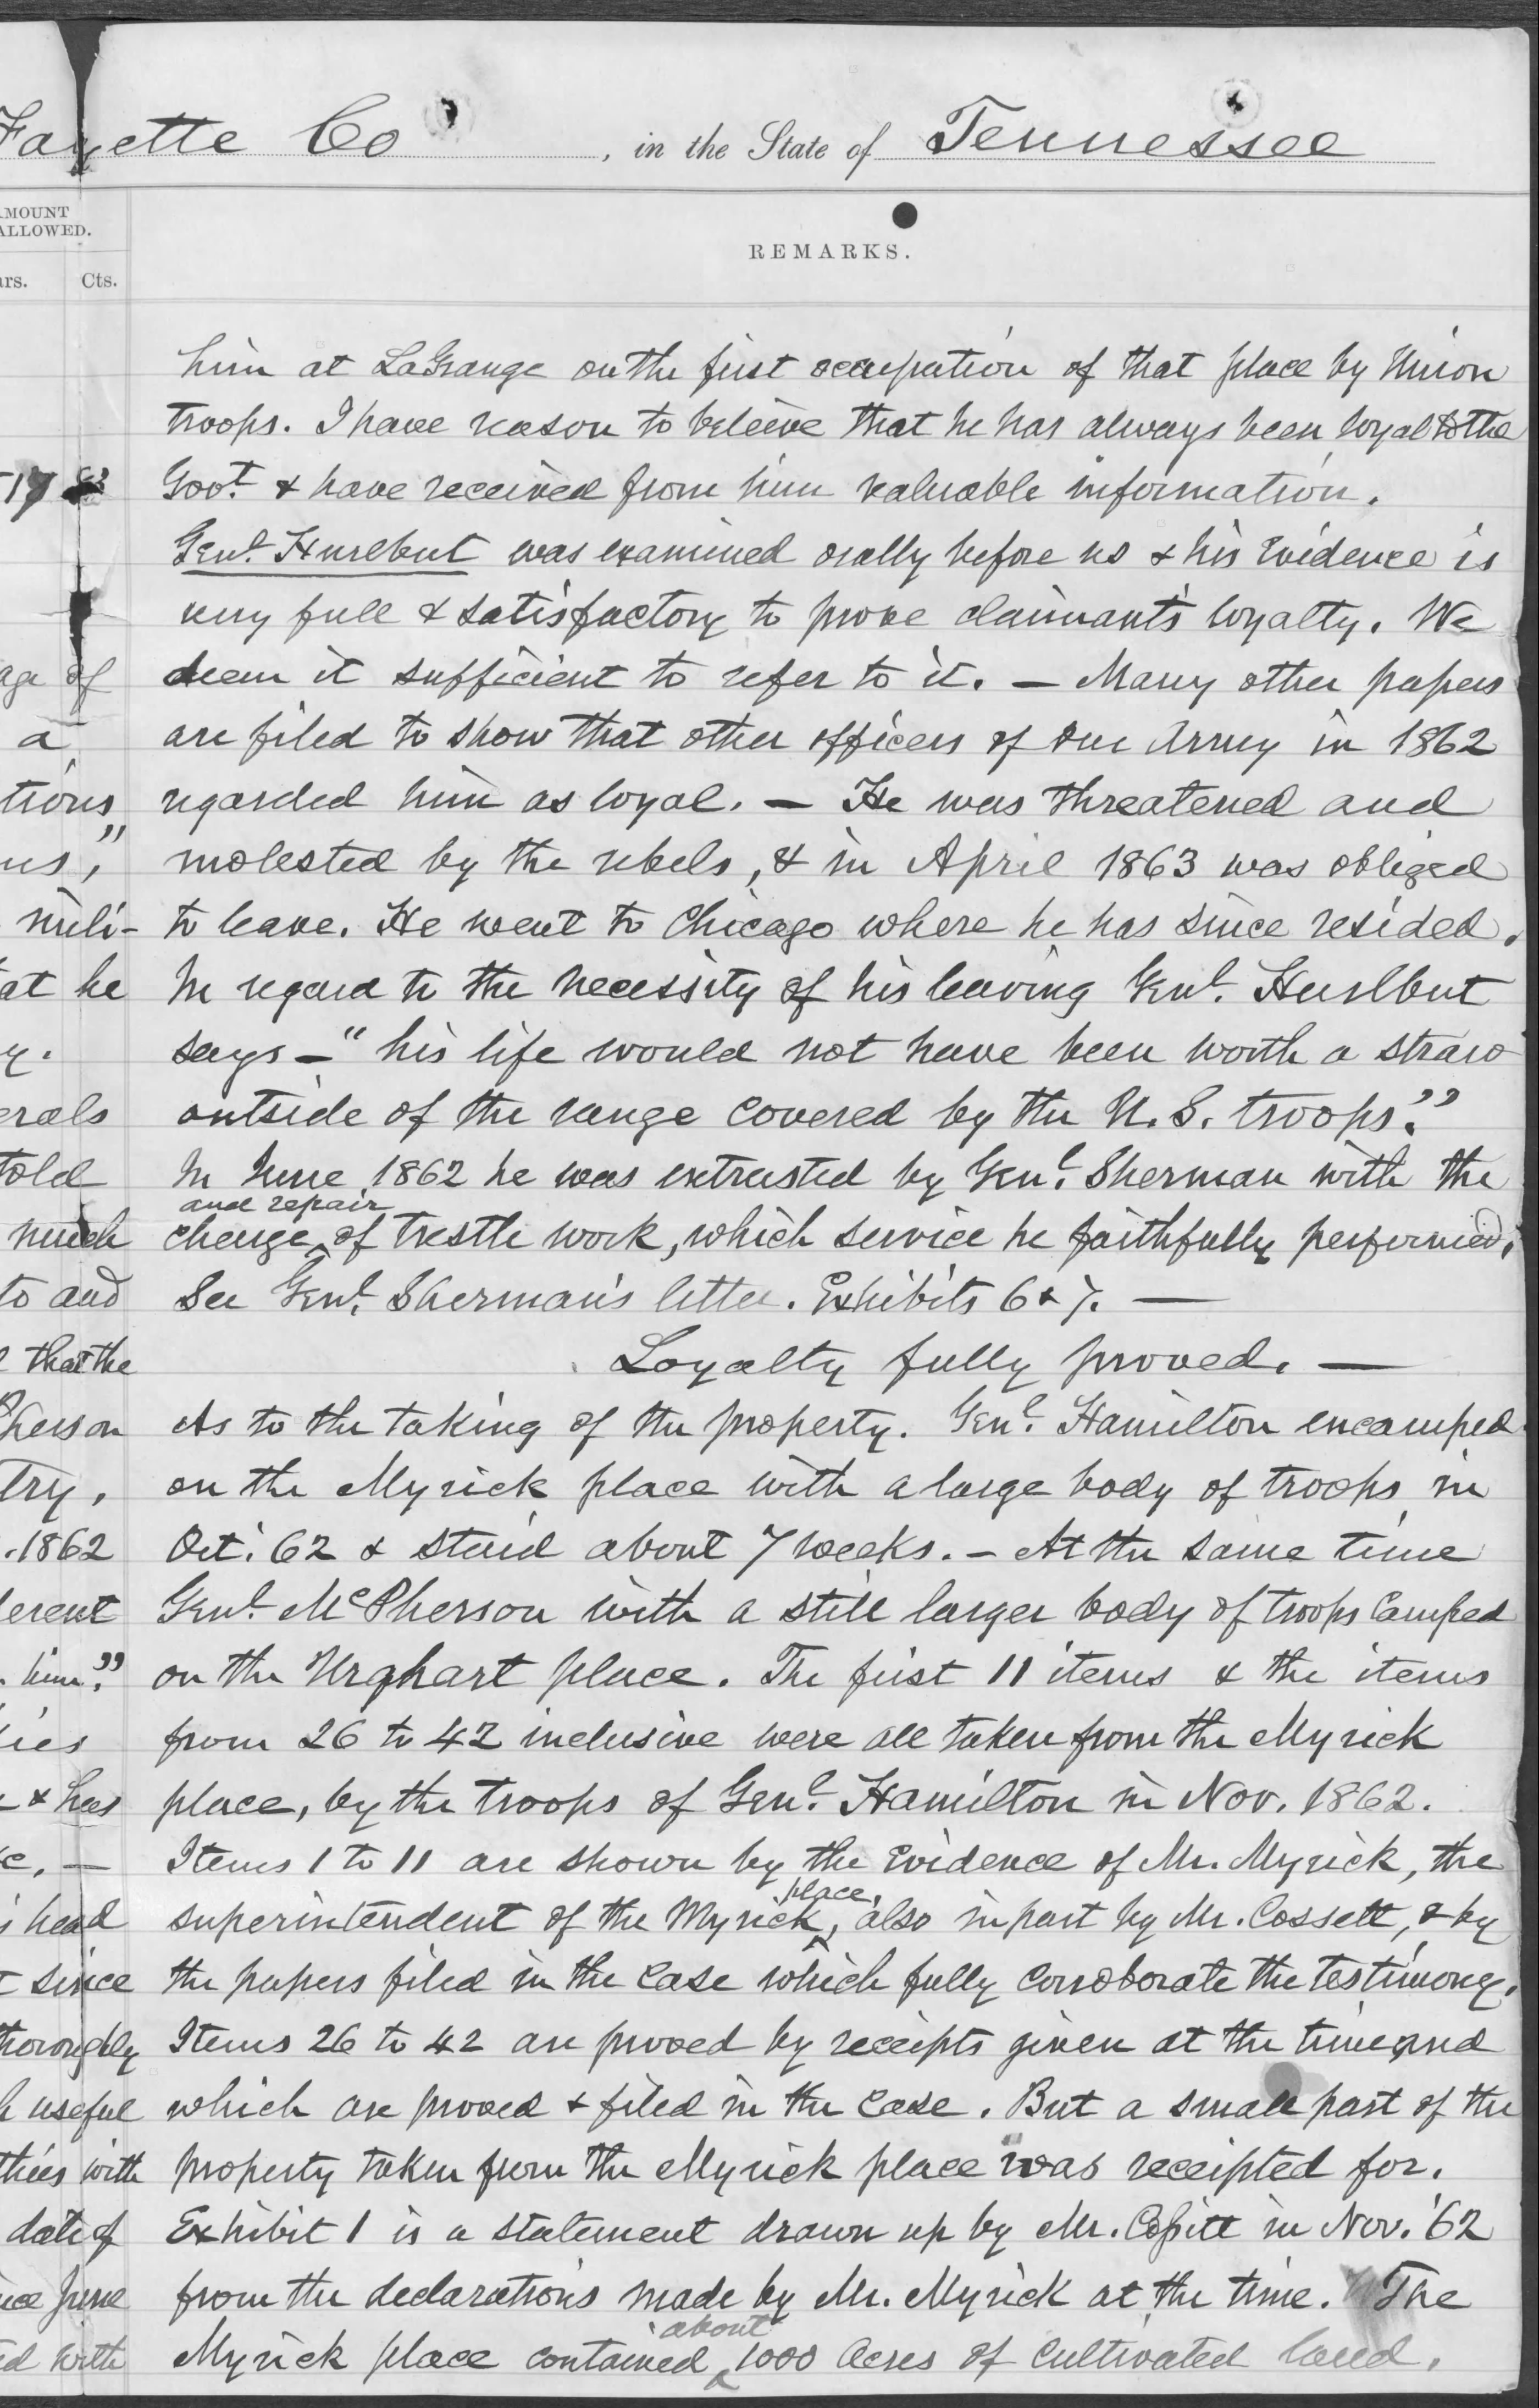 Fayette Co , in the State of Tennessee
AMOUNT
ALLOWED.
REMARKS.
ars. Cts.
him at LaGrange on the first occupation of that place by Union
troops. I have reason to beleive that he has always been loyal to the
Govt. & have received from him valuable information.
Genl. Hurlbut was examined orally before us & his evidence is
very full & satisfactory to prove claimant's loyalty. We
deem it sufficient to refer to it. — Many other papers
are filed to show that other officers of our Army in 1862
regarded him as loyal. — He was threatened and
molested by the rebels, & in April 1863 was obliged
to leave. He went to Chicago where he has since resided.
In regard to the necessity of his leaving Genl. Hurlbut
says — "his life would not have been worth a straw
outside of the range covered by the U.S. troops."
In June 1862 he was entrusted by Genl. Sherman with the
and repair
charge ^ of trestle work, which service he faithfully performed.
See Genl. Sherman's letter. Exhibits 6 & 7. —
Loyalty fully proved. —
As to the taking of the property. Genl. Hamilton encamped
on the Myrick place with a large body of troops in
Oct. 62 & staid about 7 weeks. — At the same time
Genl. McPherson with a still larger body of troops camped
on the Urqhart place. The first 11 items & the items
from 26 to 42 inclusive were all taken from the Myrick
place, by the troops of Genl. Hamilton in Nov. 1862.
Items 1 to 11 are shown by the evidence of Mr. Myrick, the
place,
superintendent of the Myrick ^ also in part by Mr. Cossett, & by
the papers filed in the case which fully corroborate the testimony.
Items 26 to 42 are proved by receipts given at the time and
which are proved & filed in the case. But a small part of the
property taken from the Myrick place was receipted for.
Exhibit 1 is a statement drawn up by Mr. Cossitt in Nov. '62
from the declarations made by Mr. Myrick at the time. The
about
Myrick place contained ^ 1000 acres of cultivated land.
17
age of
a
tions
us,"
mili-
at he
y.
erals
told
much
to and
that the
Pherson
try,
.1862
ferent
him."
ies
& has
e. —
s head
t since
thoroughly
h useful
thies with
date of
ice June
ed with